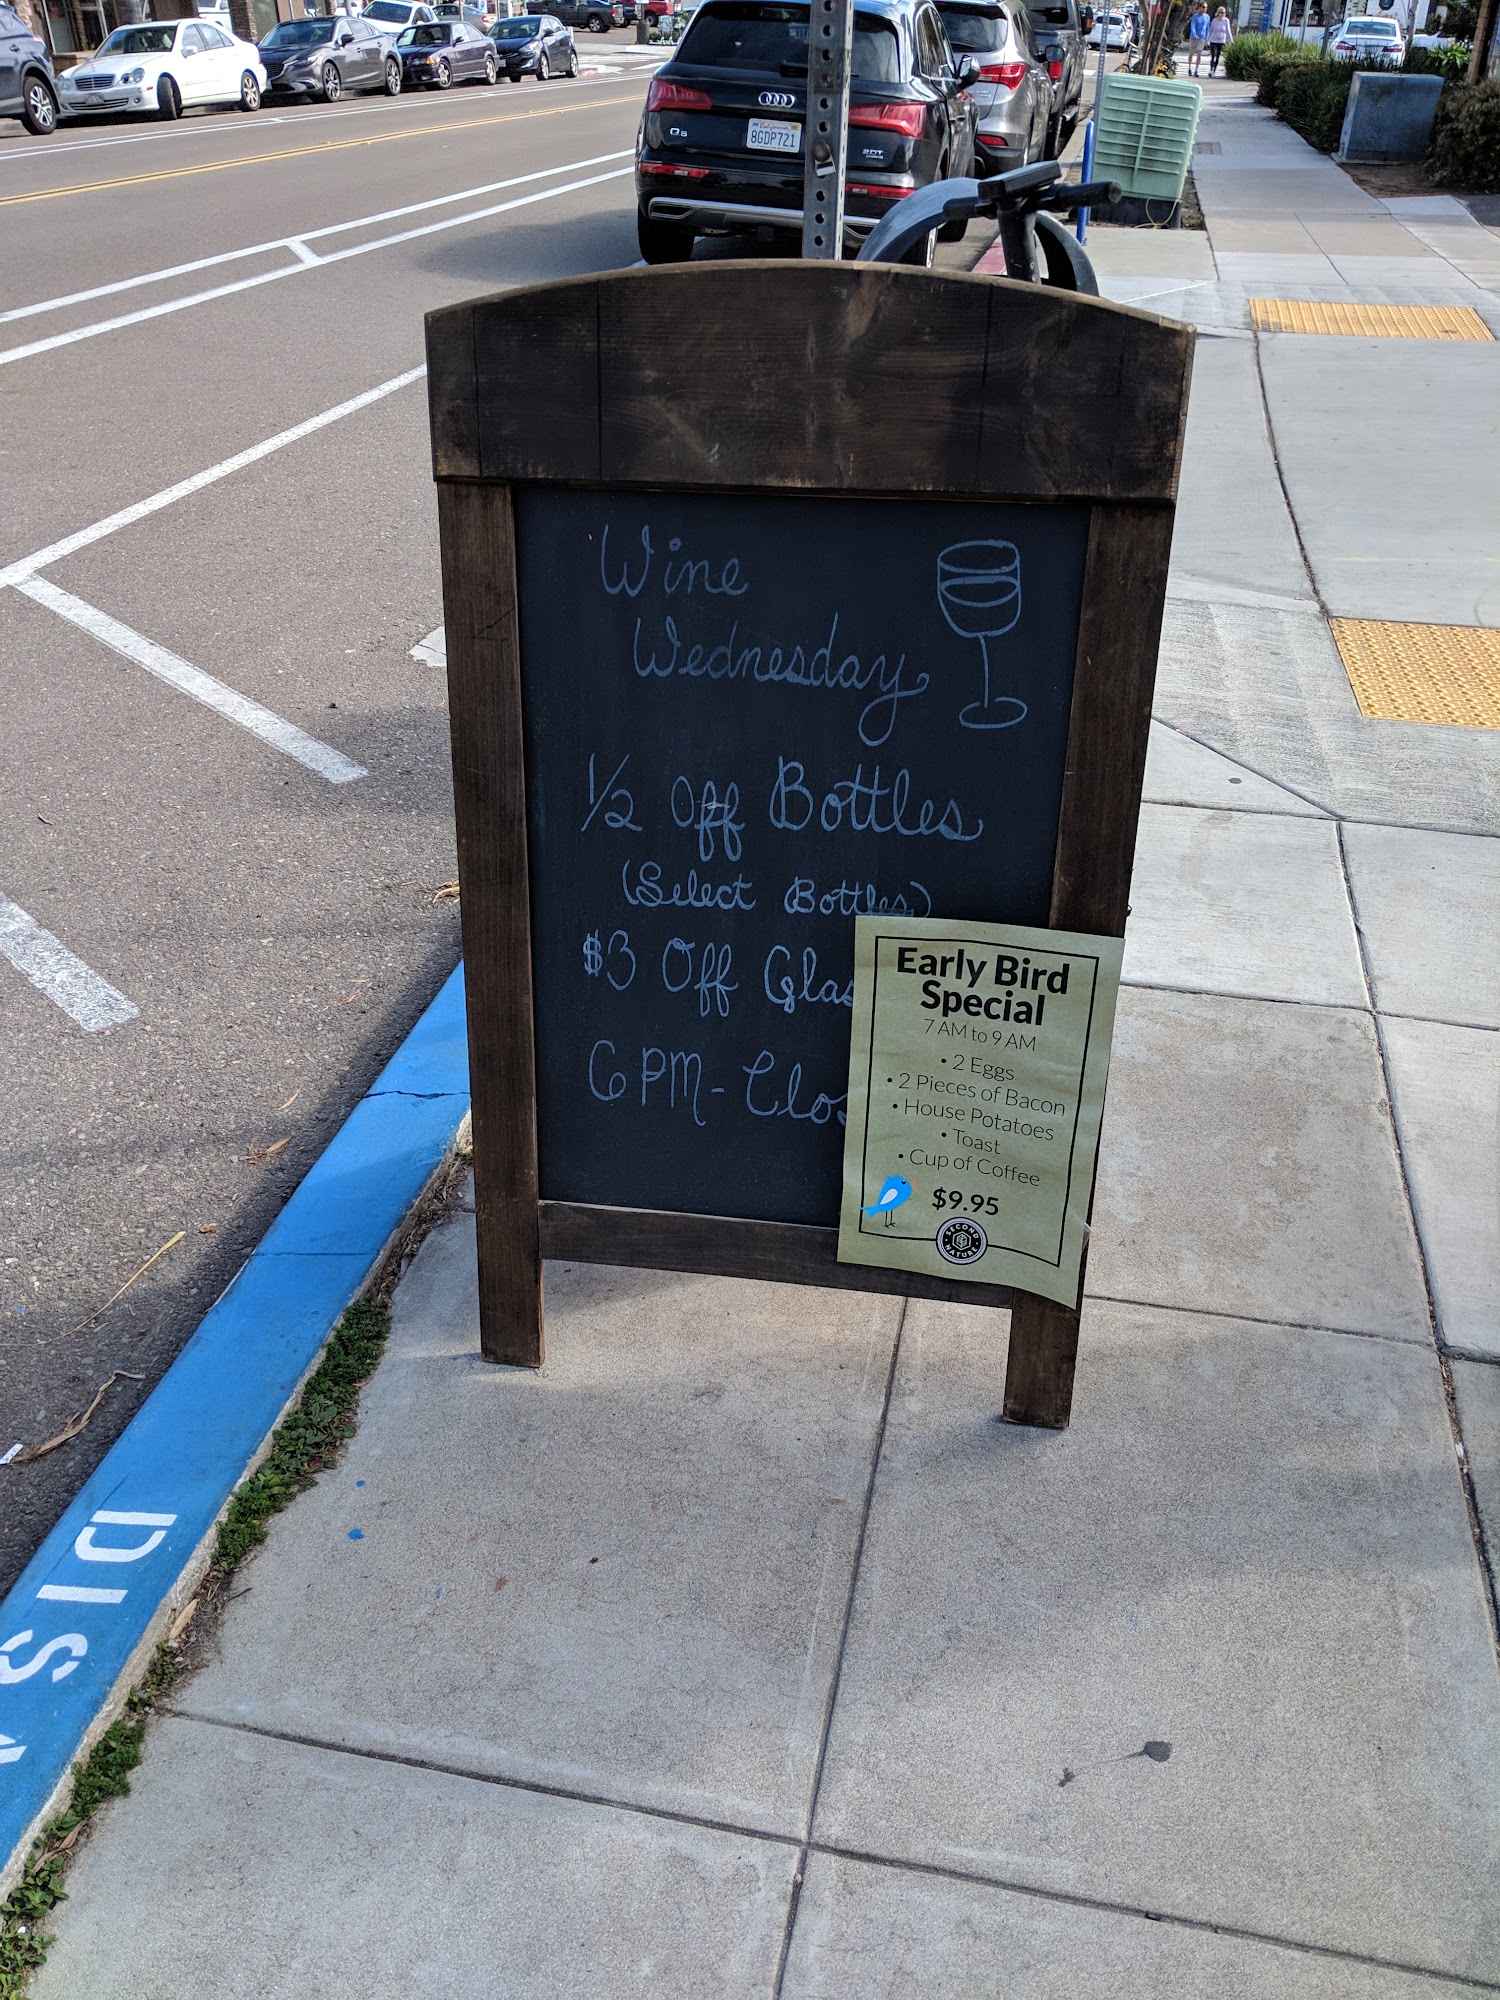 Wine
Wednesday
1/2 Off Bottles
(Select Bottles)
$3 Off
6 PM -
Early Bird
Special
7 AM to 9 AM
• 2 Eggs
• 2 Pieces of Bacon
• House Potatoes
• Toast
• Cup of Coffee
$9.95
SECOND
NATURE
Q5
California
8GDP721
2.0T
DIS